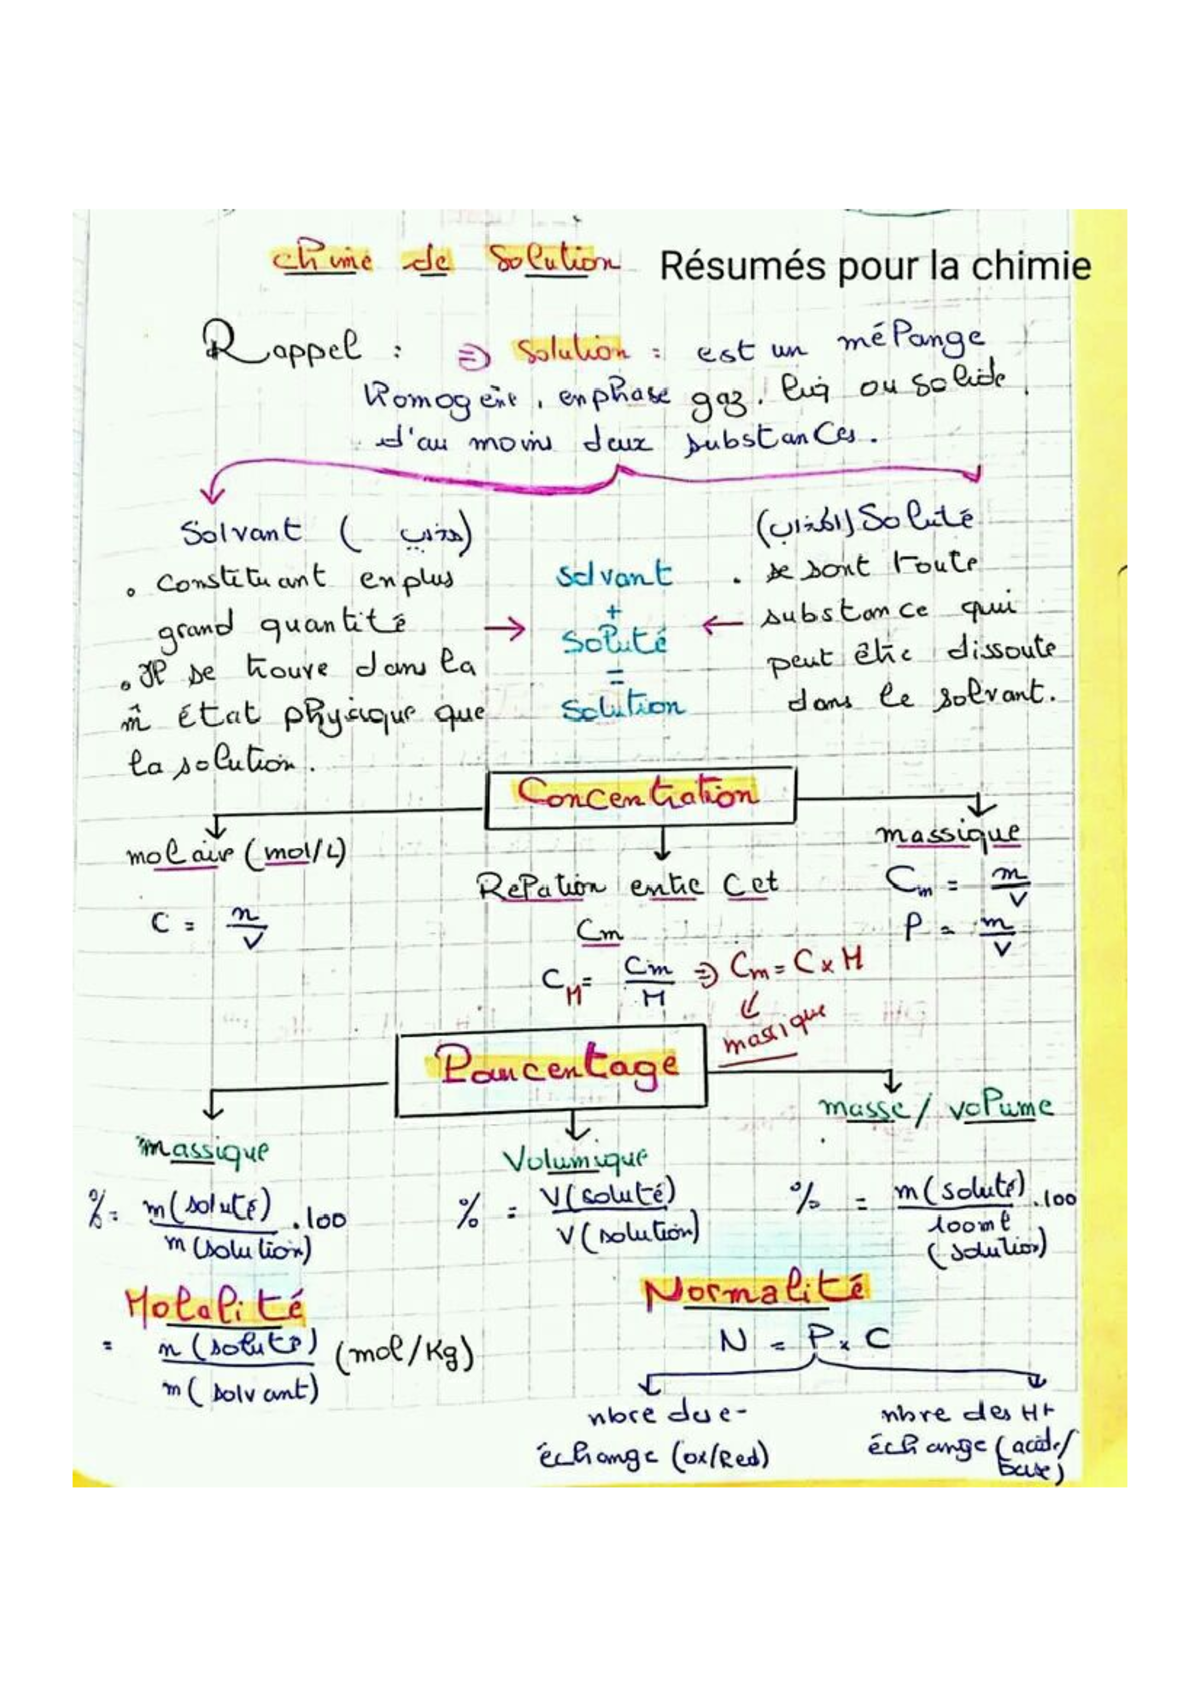 chimie de Solution Résumés pour la chimie
Rappel : => Solution : est un mélange
homogène, en phase gaz, liq ou solide,
d'au moins deux substances.
Solvant (مذيب)
(المذاب) Soluté
• Constituant en plus
grand quantité
• Il se trouve dans la
m̂ état physique que
la solution.
→ Solvant
+
Soluté
=
Solution
←
• se sont toute
substance qui
peut être dissoute
dans le solvant.
Concentration
molaire (mol/L)
C = n/V
Relation entre C et
Cm
C_M = Cm/M => Cm = C x M
massique
massique
Cm = m/V
P = m/V
Pourcentage
massique
% = m(soluté)/m(solution) .100
Volumique
% = V(soluté)/V(solution)
masse / volume
% = m(soluté)/100ml (solution) .100
Molalité
= n(soluté)/m(solvant) (mol/Kg)
Normalité
N = P x C
nbre du e-
échange (ox/Red)
nbre des H+
échange (acide/
base)